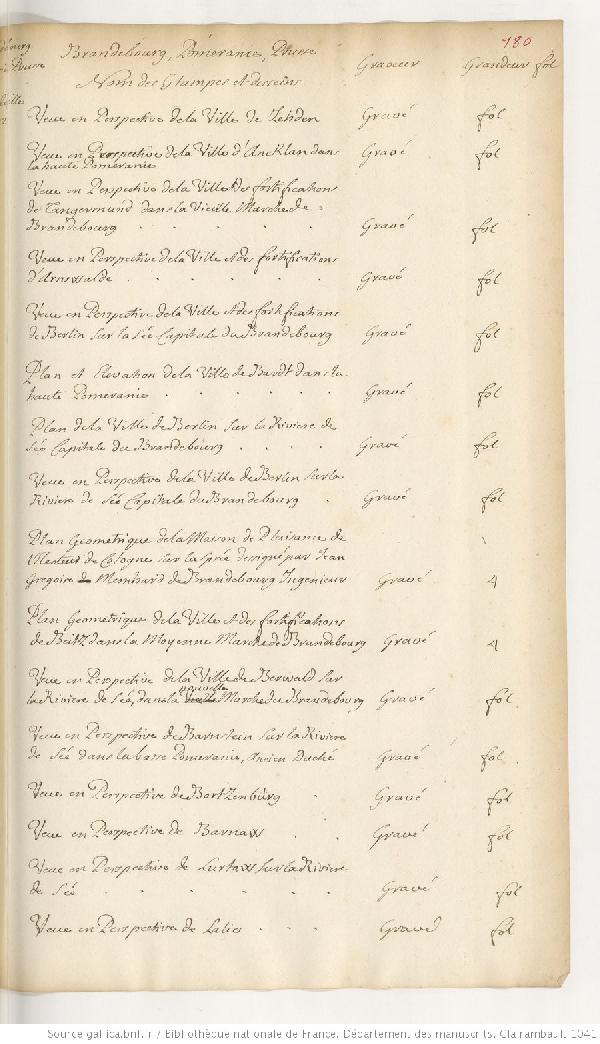 180
Brandebourg, Pomeranie, Prusse
Nom des Estampes et desseins Graveur Grandeur fol
Veue en Perspective de la Ville de Zehden Gravé fol
Veue en Perspective de la Ville d'Ancklan dans Gravé fol
la haute Pomeranie
Veue en Perspective de la Ville et des fortifications
de Tangermund dans la Vieille Marche de
Brandebourg Gravé fol
Veue en Perspective de la Ville et des fortifications
d'Arnswalde Gravé fol
Veue en Perspective de la Ville et des fortifications
de Berlin sur la Sée Capitale du Brandebourg Gravé fol
Plan et Elevation de la Ville de Bardt dans la
haute Pomeranie Gravé fol
Plan de la Ville de Berlin sur la Riviere de
Sée Capitale du Brandebourg Gravé fol
Veue en Perspective de la Ville de Berlin sur la
Riviere de Sée Capitale du Brandebourg Gravé fol
Plan Geometrique de la Maison de Plaisance de
de Cologne sur la Sprée designé par Jean
Gregoire de Memhard de Brandebourg Ingenieur Gravé 4
Plan Geometrique de la Ville et des fortifications
de Beitz dans la Moyenne Marche de Brandebourg Gravé 4
Veue en Perspective de la Ville de Berwald sur
la Riviere de Sée, dans la Vieille nouvelle Marche du Brandebourg Gravé fol
Veue en Perspective de Barnstein sur la Riviere
de Sée dans la basse Pomeranie, Ancien Duché Gravé fol
Veue en Perspective de Bortzenbürg Gravé fol
Veue en Perspective de Barnaw Gravé fol
Veue en Perspective de sur la Riviere
de Sée Gravé fol
Veue en Perspective de Gravé fol
Source gallica.bnf.fr / Bibliothèque nationale de France. Département des manuscrits. Clairambault 1041